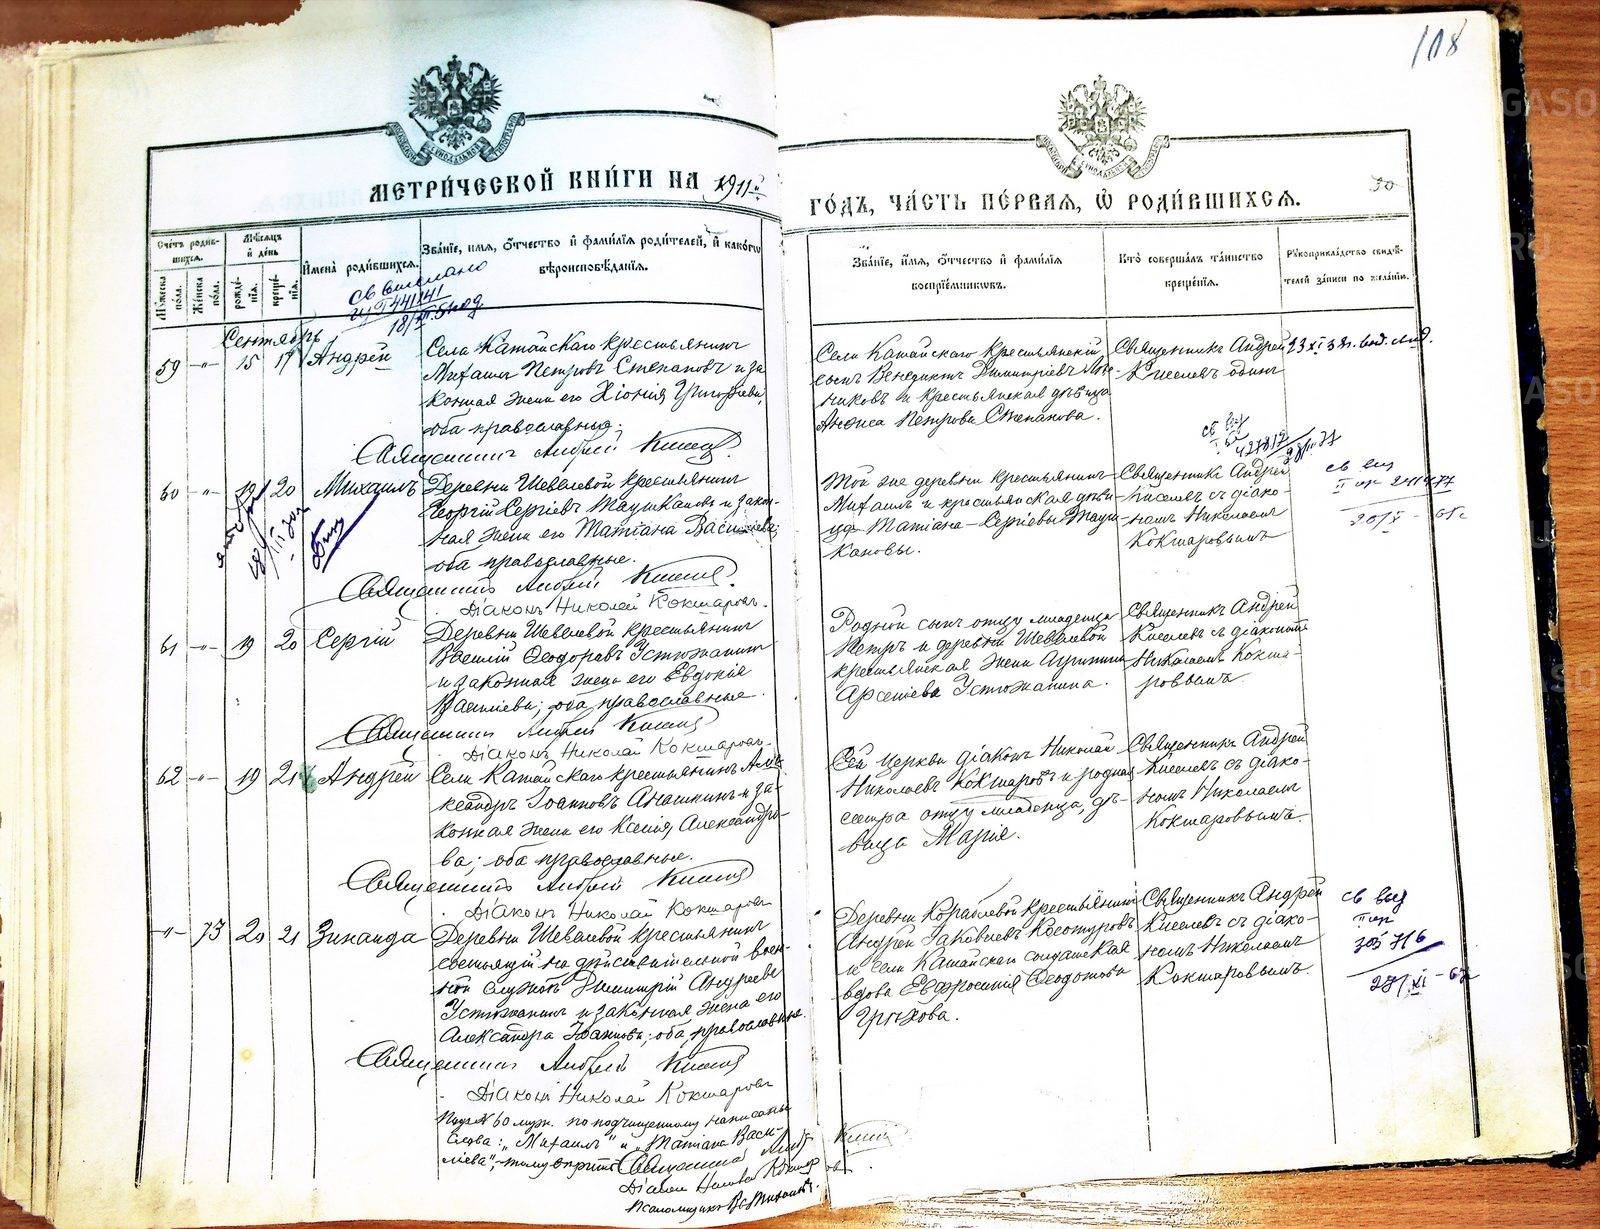 108
МОСКОВСКОЙ СѴНОДАЛЬНОЙ ТИПОГРАФІИ
МЕТРИ́ЧЕСКОЙ КНИ́ГИ НА 1911й
ГО́ДЪ, ЧА́СТЬ ПЕ́РВАЯ, Ѽ РОДИ́ВШИХСЯ.
30
Сче́тъ роди́вшихся.
Му́жеска по́ла.
Же́нска по́ла.
Мѣ́сяцъ и́ де́нь
рожде́нія.
креще́нія.
И҆мена̀ роди́вшихся.
Зва́ніе, и҆́мя, ѻ҆́тчество и҆ фами́лія роди́телей, и҆ како́гѡ
вѣроисповѣ́данія.
Зва́ніе, и҆́мя, ѻ҆́тчество и҆ фами́лія
воспріе́мниковъ.
Кто̀ соверша́лъ та́инство
креще́нія.
Рꙋкоприкла́дство свидѣ́-
телей за́писи по жела́нію.
Сентябрь
59 -"- 15 17 Андрей
Села Катайскаго крестьянинъ
Михаилъ Петровъ Степановъ и за
конная жена его Хіонія Григорьева,
оба православные.
Священникъ Андрей Киселевъ
Села Катайскаго крестьянскій
сынъ Венедиктъ Димитріевъ
никовъ и крестьянская дѣвица
Анѳиса Петрова Степанова.
Священникъ Андрей
Киселевъ одинъ
60 -"- 19 20 Михаилъ
Деревни Шевелевой крестьянинъ
Георгій Сергіевъ Таушкановъ и закон-
ная жена его Татіана Васильева,
оба православные.
Священникъ Андрей Киселевъ
Діаконъ Николай Кокшаровъ.
Той же деревни крестьянинъ
Михаилъ и крестьянская дѣви-
ца Татіана Сергіевы Тауш-
кановы.
Священникъ Андрей
Киселевъ съ діако-
номъ Николаемъ
Кокшаровымъ
61 -"- 19 20 Сергій
Деревни Шевелевой крестьянинъ
Василій Ѳеодоровъ Устюжанинъ
и законная жена его Евдокія
Васильева; оба православные.
Священникъ Андрей Киселевъ
Діаконъ Николай Кокшаровъ.
Родной сынъ отцу младенца
Петръ и деревни Шевелевой
крестьянская жена Агрипина
Арсеніева Устюжанина.
Священникъ Андрей
Киселевъ съ діакономъ
Николаемъ Кокша-
ровымъ
62 -"- 19 21 Андрей
Села Катайскаго крестьянинъ Але-
ксандръ Іоанновъ Анашкинъ и за-
конная жена его Ксенія Александро-
ва; оба православные.
Священникъ Андрей Киселевъ
Діаконъ Николай Кокшаровъ
Сей церкви діаконъ Николай
Николаевъ Кокшаровъ и родная
сестра отцу младенца, дѣ-
вица Марія.
Священникъ Андрей
Киселевъ съ діако-
номъ Николаемъ
Кокшаровымъ.
-"- 73 20 21 Зинаида
Деревни Шевелевой крестьянинъ
состоящій на дѣйствительной воен-
ной службѣ Димитрій Андреевъ
Устюжанинъ и законная жена его
Александра Іоаннова; оба православные.
Священникъ Андрей Киселевъ
Діаконъ Николай Кокшаровъ
Деревни Кораблевой крестьянинъ
Андрей Іаковлевъ Косотуровъ
и села Катайскаго солдатская
вдова Евфросинія Ѳеодотова
Грѣхова.
Священникъ Андрей
Киселевъ съ діако-
номъ Николаемъ
Кокшаровымъ.
св выд
II
305716
27/XI-67
Подъ № 60 муж. по подчищенному написаны
слова: „Михаилъ" и „Татіана Васи-
ліева",
Священникъ Андрей Киселевъ
Діаконъ Николай Кокшаровъ
Псаломщикъ
GASO
RU